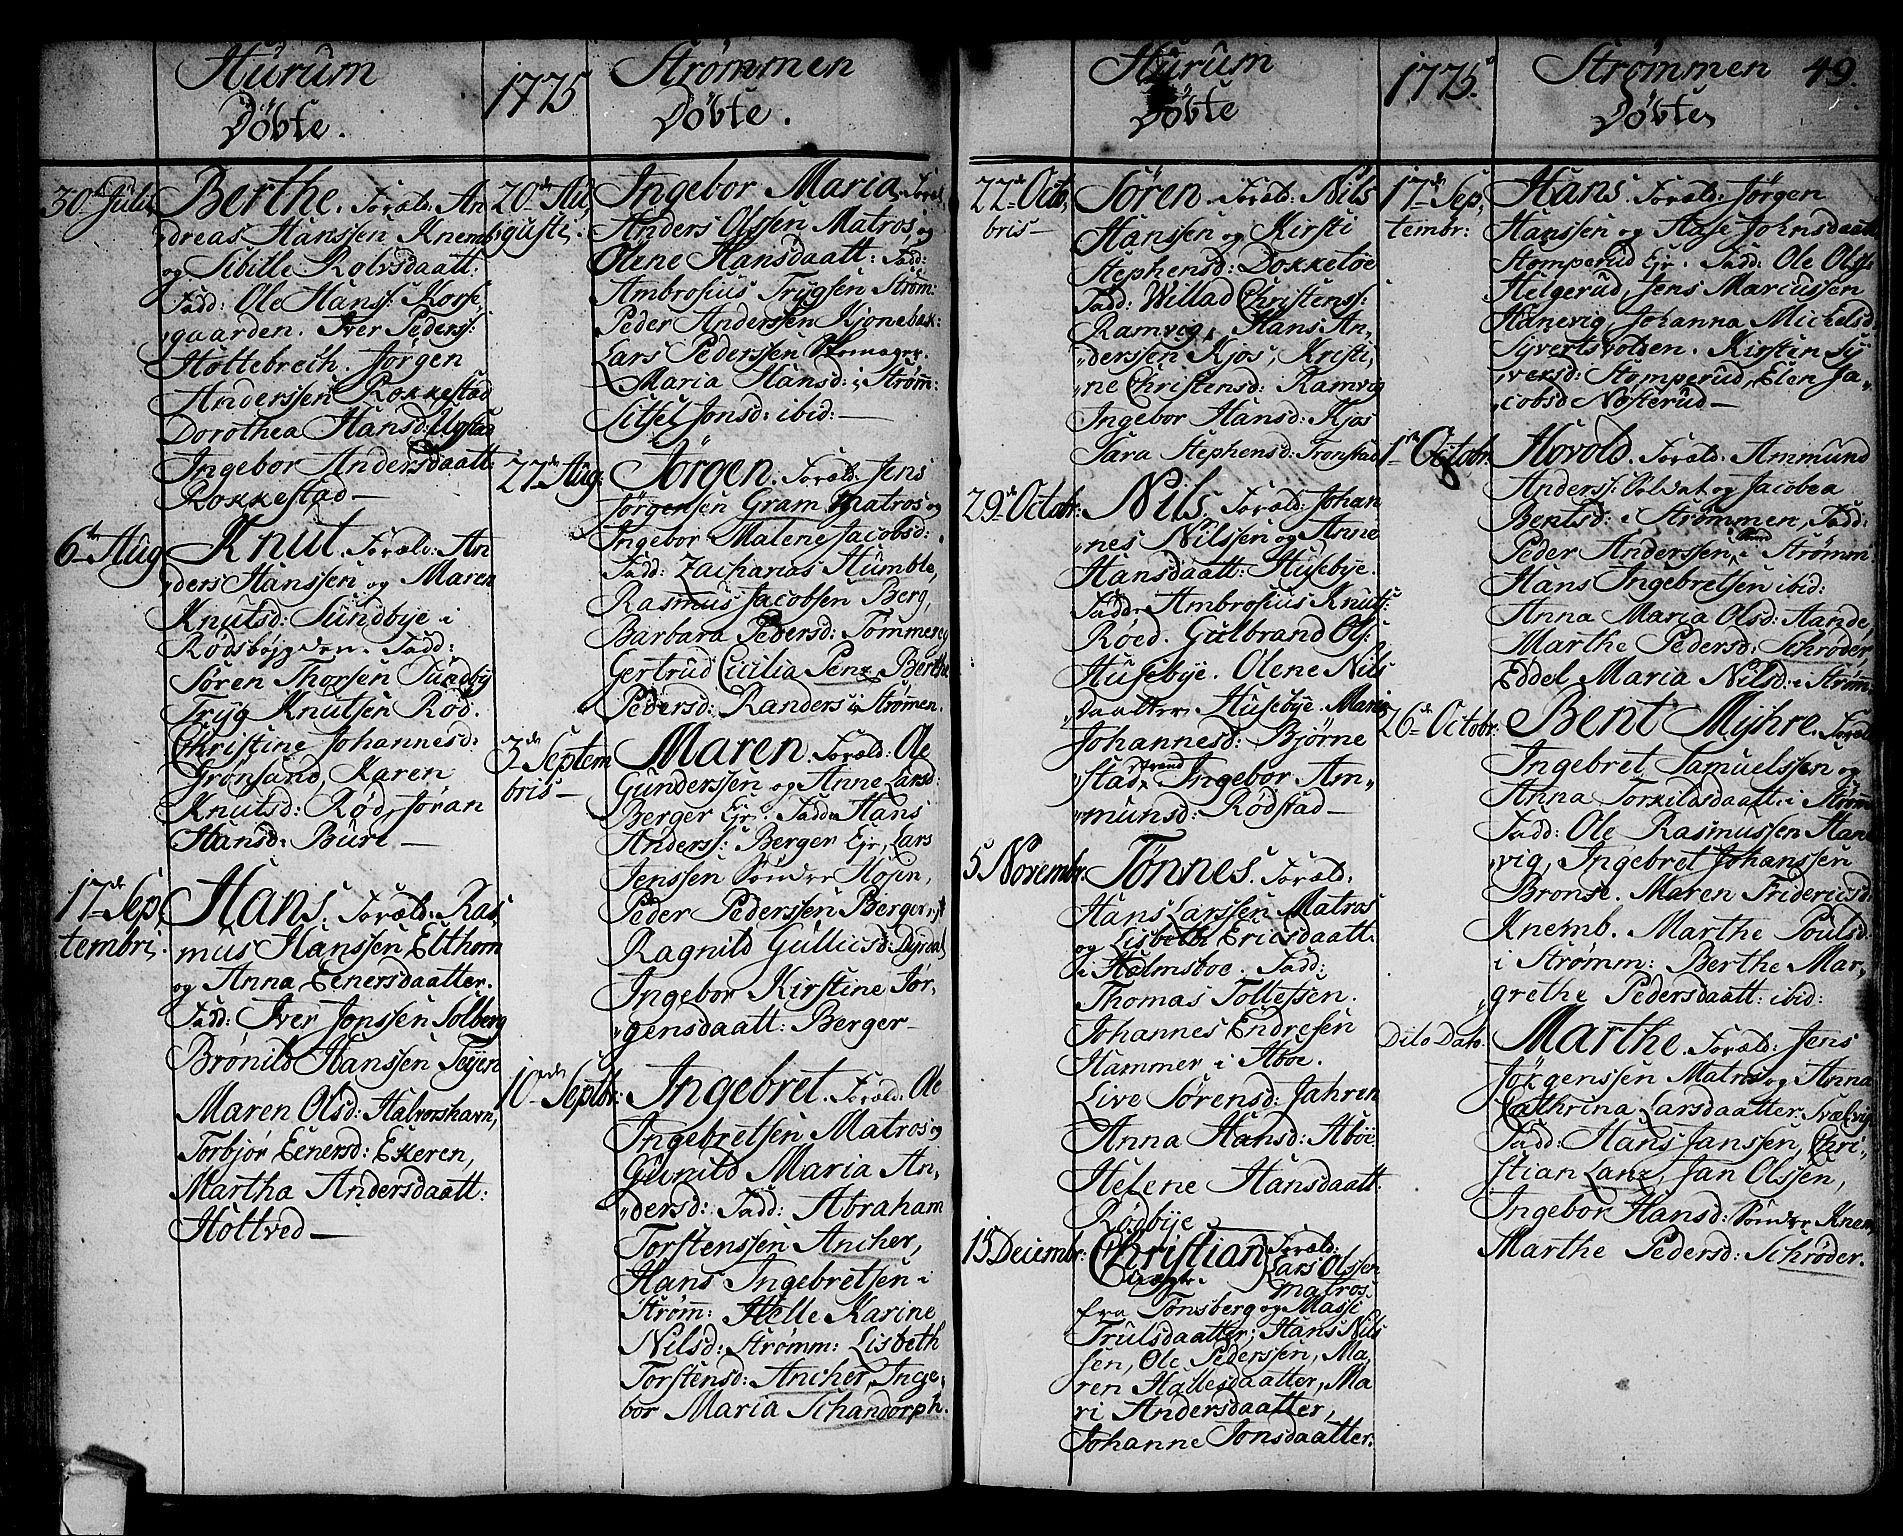 Hurum
Döbte.
30te Julii
Berthe. Foræld: An
dreas Hanssen Knemb
og Sibille Rolvsdaatt:
Fadd: Ole Hanss: Korse
gaarden. Iver Peders:
Holtebrech. Jørgen
Anderssen Rokkestad
Dorothea Hansd:
Ingebor Andersdaatt:
Rokkestad—
6te Aug
Knut. Foræld: An
ders Hanssen og Maren
Knutsd: Sundbye i
Rødsbøygden. Fadd:
Søren Thorsen Sundby
Tryg Knutsen Rød.
Christine Johannesd:
Grønsand, Karen
Knutsd: Rød, Jøran
Hansd: Bure —
17de Sep
tembri.
Hans. Foræld: Ras
mus Hanssen Elthorn
og Anna Eenersdaatter.
Fadd: Iver Jonssen Solberg
Brønild Hanssen Tejen
Maren Olsd: Halvorshavn,
Torbjør Eenersd: Ekeren,
Martha Andersdaatt:
Holtved—
1775
Strømmen
Døbte.
20de Au
gusti:
Ingebor Maria, Foræld
Anders Olssen Matros, og
Olene Hansdaatt: Fadd:
Ambrosius Trygsen Strøm:
Peder Anderssen Kjønebek:
Lars Pederssen Skomager.
Maria Hansd: i Strøm:
Sitsel Jonsd: ibid:—
27de Aug.
Jørgen. Foræld: Jens
Jørgensen Gram Matros og
Ingebor Malene Jacobsd:
Fadd: Zacharias Humble,
Rasmus Jacobsen Berg,
Barbara Pedersd: Tømmerag
Gertrud Cicilia Penz, Berthe
Pedersd: Randers i Strømen.
3de Septem
bris—
Maren. Foræld: Ole
Gunderssen og Anne Larsd:
Berger Ejr. Fadd: Hans
Anderss: Berger Ejr, Lars
Jenssen Sønder Hojen,
Peder Pederssen Berger
Ragnild Gullicsd: Dyrdal
Ingebor Kirstine Jør,
gensdaatt: Berger—
10de Septbr:
Ingebret. Foræld: Ole
Ingebretsen Matros og
Gunild Maria An,
dersd: Fadd: Abraham
Torstenssen Ancher,
Hans Ingebretsen i
Strøm: Helle Karine
Nilsd: Strømm: Lisbeth
Torstensd: Ancher, Inge,
bor Maria Schandorph.
Hurum
Döbte
22de Octo
bris—
Søren. Foræld: Nils
Hanssen og Kirsti
Stephensd: Dokketøe
Fadd: Willad Christenss:
Ramvig, Hans An,
derssen Kjos, Kristi,
ne Christensd: Ramvig
Ingebor Hansd: Kjos
Sara Stephensd: Tronstad
29de Octobr:
Nils, Foræld: Johan
nes Nilssen og Anne
Hansdaatt: Husebye.
Fadd: Ambrosius Knuts:
Røed. Gulbrand Ols:
Husebye. Olene Nils
daatter Husebye. Maria
Johannesd: Bjørne
stad, Ingebor Am,
munsd: Rødstad—
5 Novembr:
Tønnes. Foræld:
Hans Larssen Matros
og Lisbeth Ericsdaatt:
i Holmsboe. Fadd:
Thomas Tollefsen.
Johannes Endresen
Hammer i Aboe.
Live Sørensd: Jahren
Anna Hansd: Aboe
Helene Hansdaatt:
Rødbye
15 Decembr:
Christian Foræld:
Lars Olssen
matros.
fra Tønsberg og Masse
Trulsdaatter, Hans Nils
sen, Ole Pederssen, Ma
ren Hallesdaatter, Ma
ri Andersdaatter,
Johanne Jonsdaatter.
1775.
Strømmen
Døbte
49.
17de Sep,
tembr:
Hans. Foræld: Jørgen
Hanssen og Aase Johnsdaatt
Stomperud Ejr. Fadd: Ole Olss
Helgerud, Jens Marcussen
Hanevig, Johanna Mickelsd
Syvertsvolden. Kirsten Sy
versd: Stomperud, Elen Ja,
cobsd Nosterud—
1te Octobr:
Hovold. Foræld: Ammund
Anderss: Soldat og Jacobea
Bentsd: i Strømmen, Fadd:
Peder Anderssen i Strømm:
Hans Ingebretsen ibid:
Anna Maria Olsd: Aande,
Marthe Pedersd: Schrøder,
Eddel Maria Nilsd: i Strømm
26de Octobr:
Bent Myhre. Foræld
Ingebret Samuelssen og
Anna Torkildsdaatt: i Strømm
Fadd: Ole Rasmussen Hane
vig, Ingebret Johanssen
Bronse. Maren Fridericsd:
Knemb. Marthe Poulsd:
i Strømm: Berthe Mar,
grethe Pedersdaatt: ibid:
Dito Dato.
Marthe. Foræld: Jens
Jørgenssen Matros og Anna
Cathrina Larsdaatter Svælvig
Fadd: Hans Janssen, Chri,
stian Lanz, Jan Olssen,
Ingebor Hansd: Sønder Knem,
Marthe Pedersd: Schrøder.